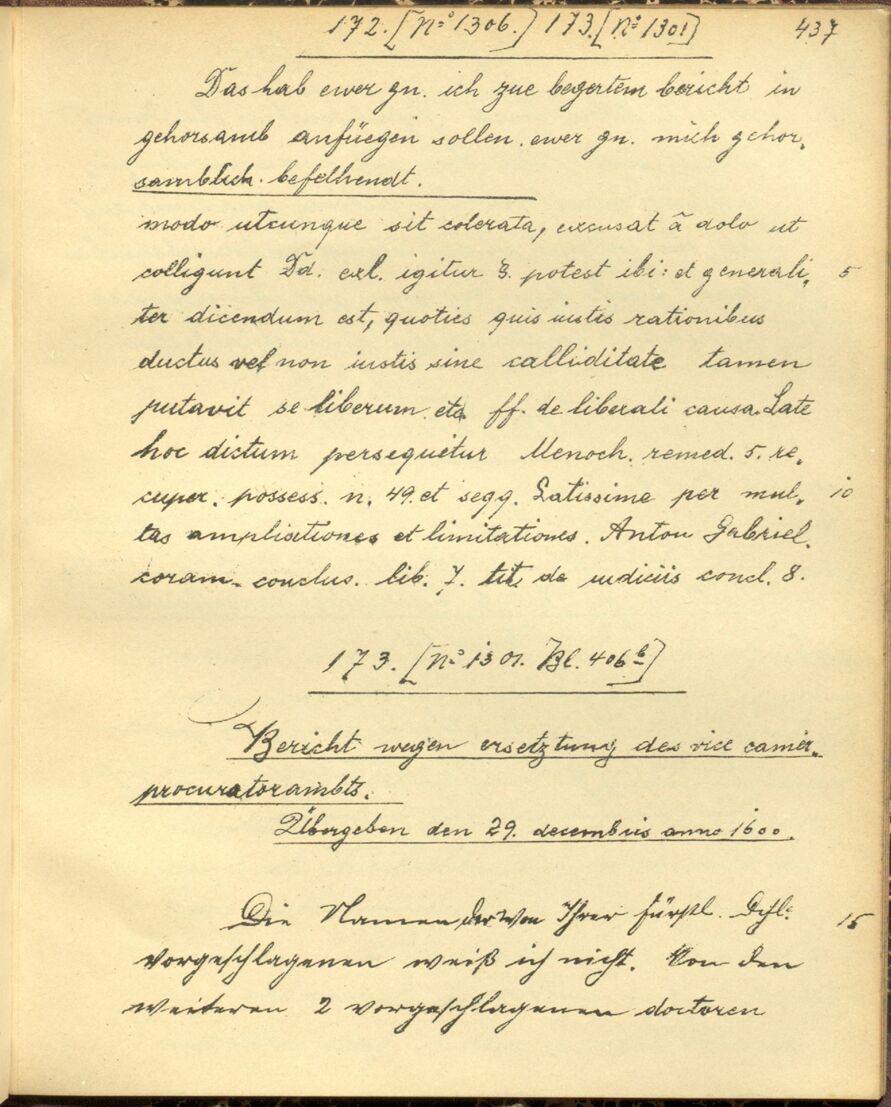 172. [No 1306.] 173. [No 1301] 437
Das hab ewer gn. ich zue begertem bericht in
gehorsamb anfüegen sollen. ewer gn. mich gehor-
samblich befelhendt.
modo utcunque sit colerata, excusat â dolo ut
colligunt Dd. exl. igitur §. potest ibi: et generali- 5
ter dicendum est, quoties quis iustis rationibus
ductus vel non iustis sine calliditate tamen
putavit se liberum etc ff. de liberali causa. Late
hoc dictum persequitur Menoch. remed. 5. re-
cuper. possess. n. 49. et seqq. Latissime per mul- 10
tas amplisitiones et limitationes. Anton Gabriel.
coram. conclus. lib. 7. tit. de iudiciis concl. 8.
173. [No 1301. Bl. 406b]
Bericht wegen ersetztung des vice camer-
procuratorambts.
Übergeben den 29. decembris anno 1600.
Die Namen der von Ihrer fürstl. Dchl. 15
vorgeschlagenen weiß ich nicht. Von den
weiteren 2 vorgeschlagenen doctoren